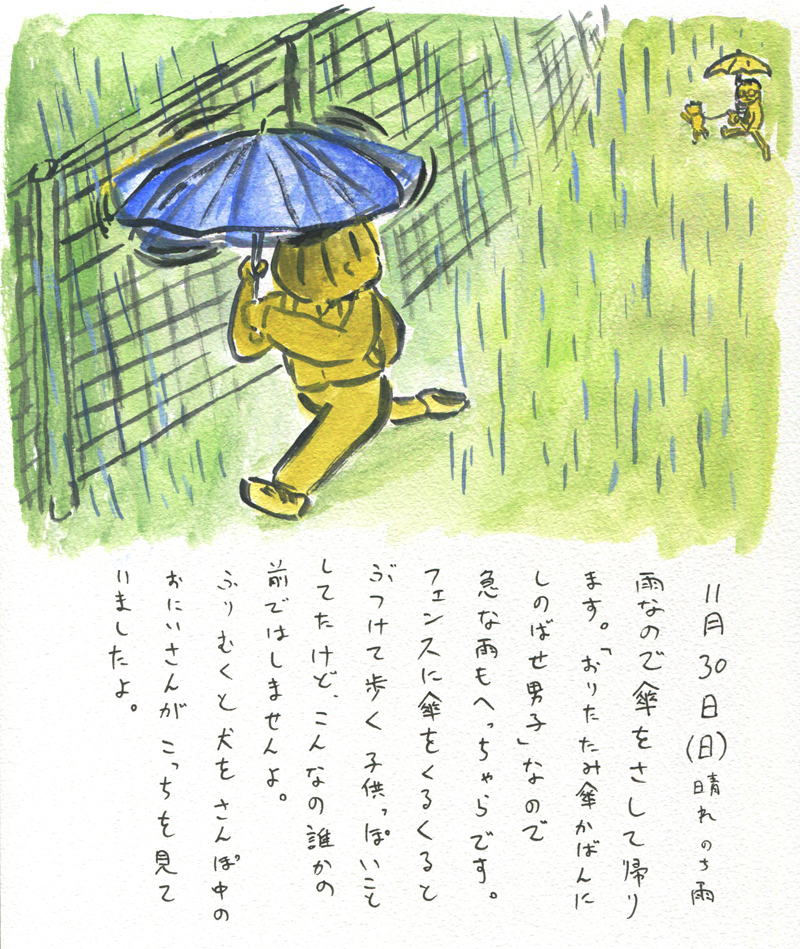 11月30日(日)晴れのち雨
雨なので傘をさして帰り
ます。「おりたたみ傘かばんに
しのばせ男子」なので
急な雨もへっちゃらです。
フェンスに傘をくるくると
ぶつけて歩く子供っぽいこと
してたけど、こんなの誰かの
前ではしませんよ。
ふりむくと犬をさんぽ中の
おにいさんがこっちを見て
いましたよ。